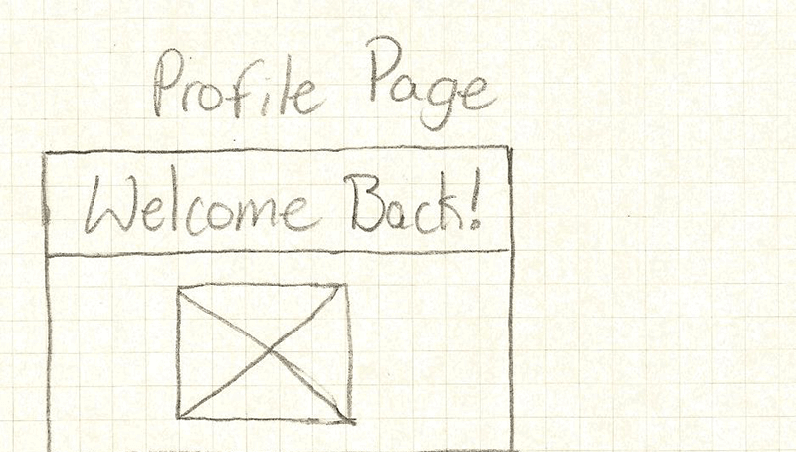 Profile Page
Welcome Back!